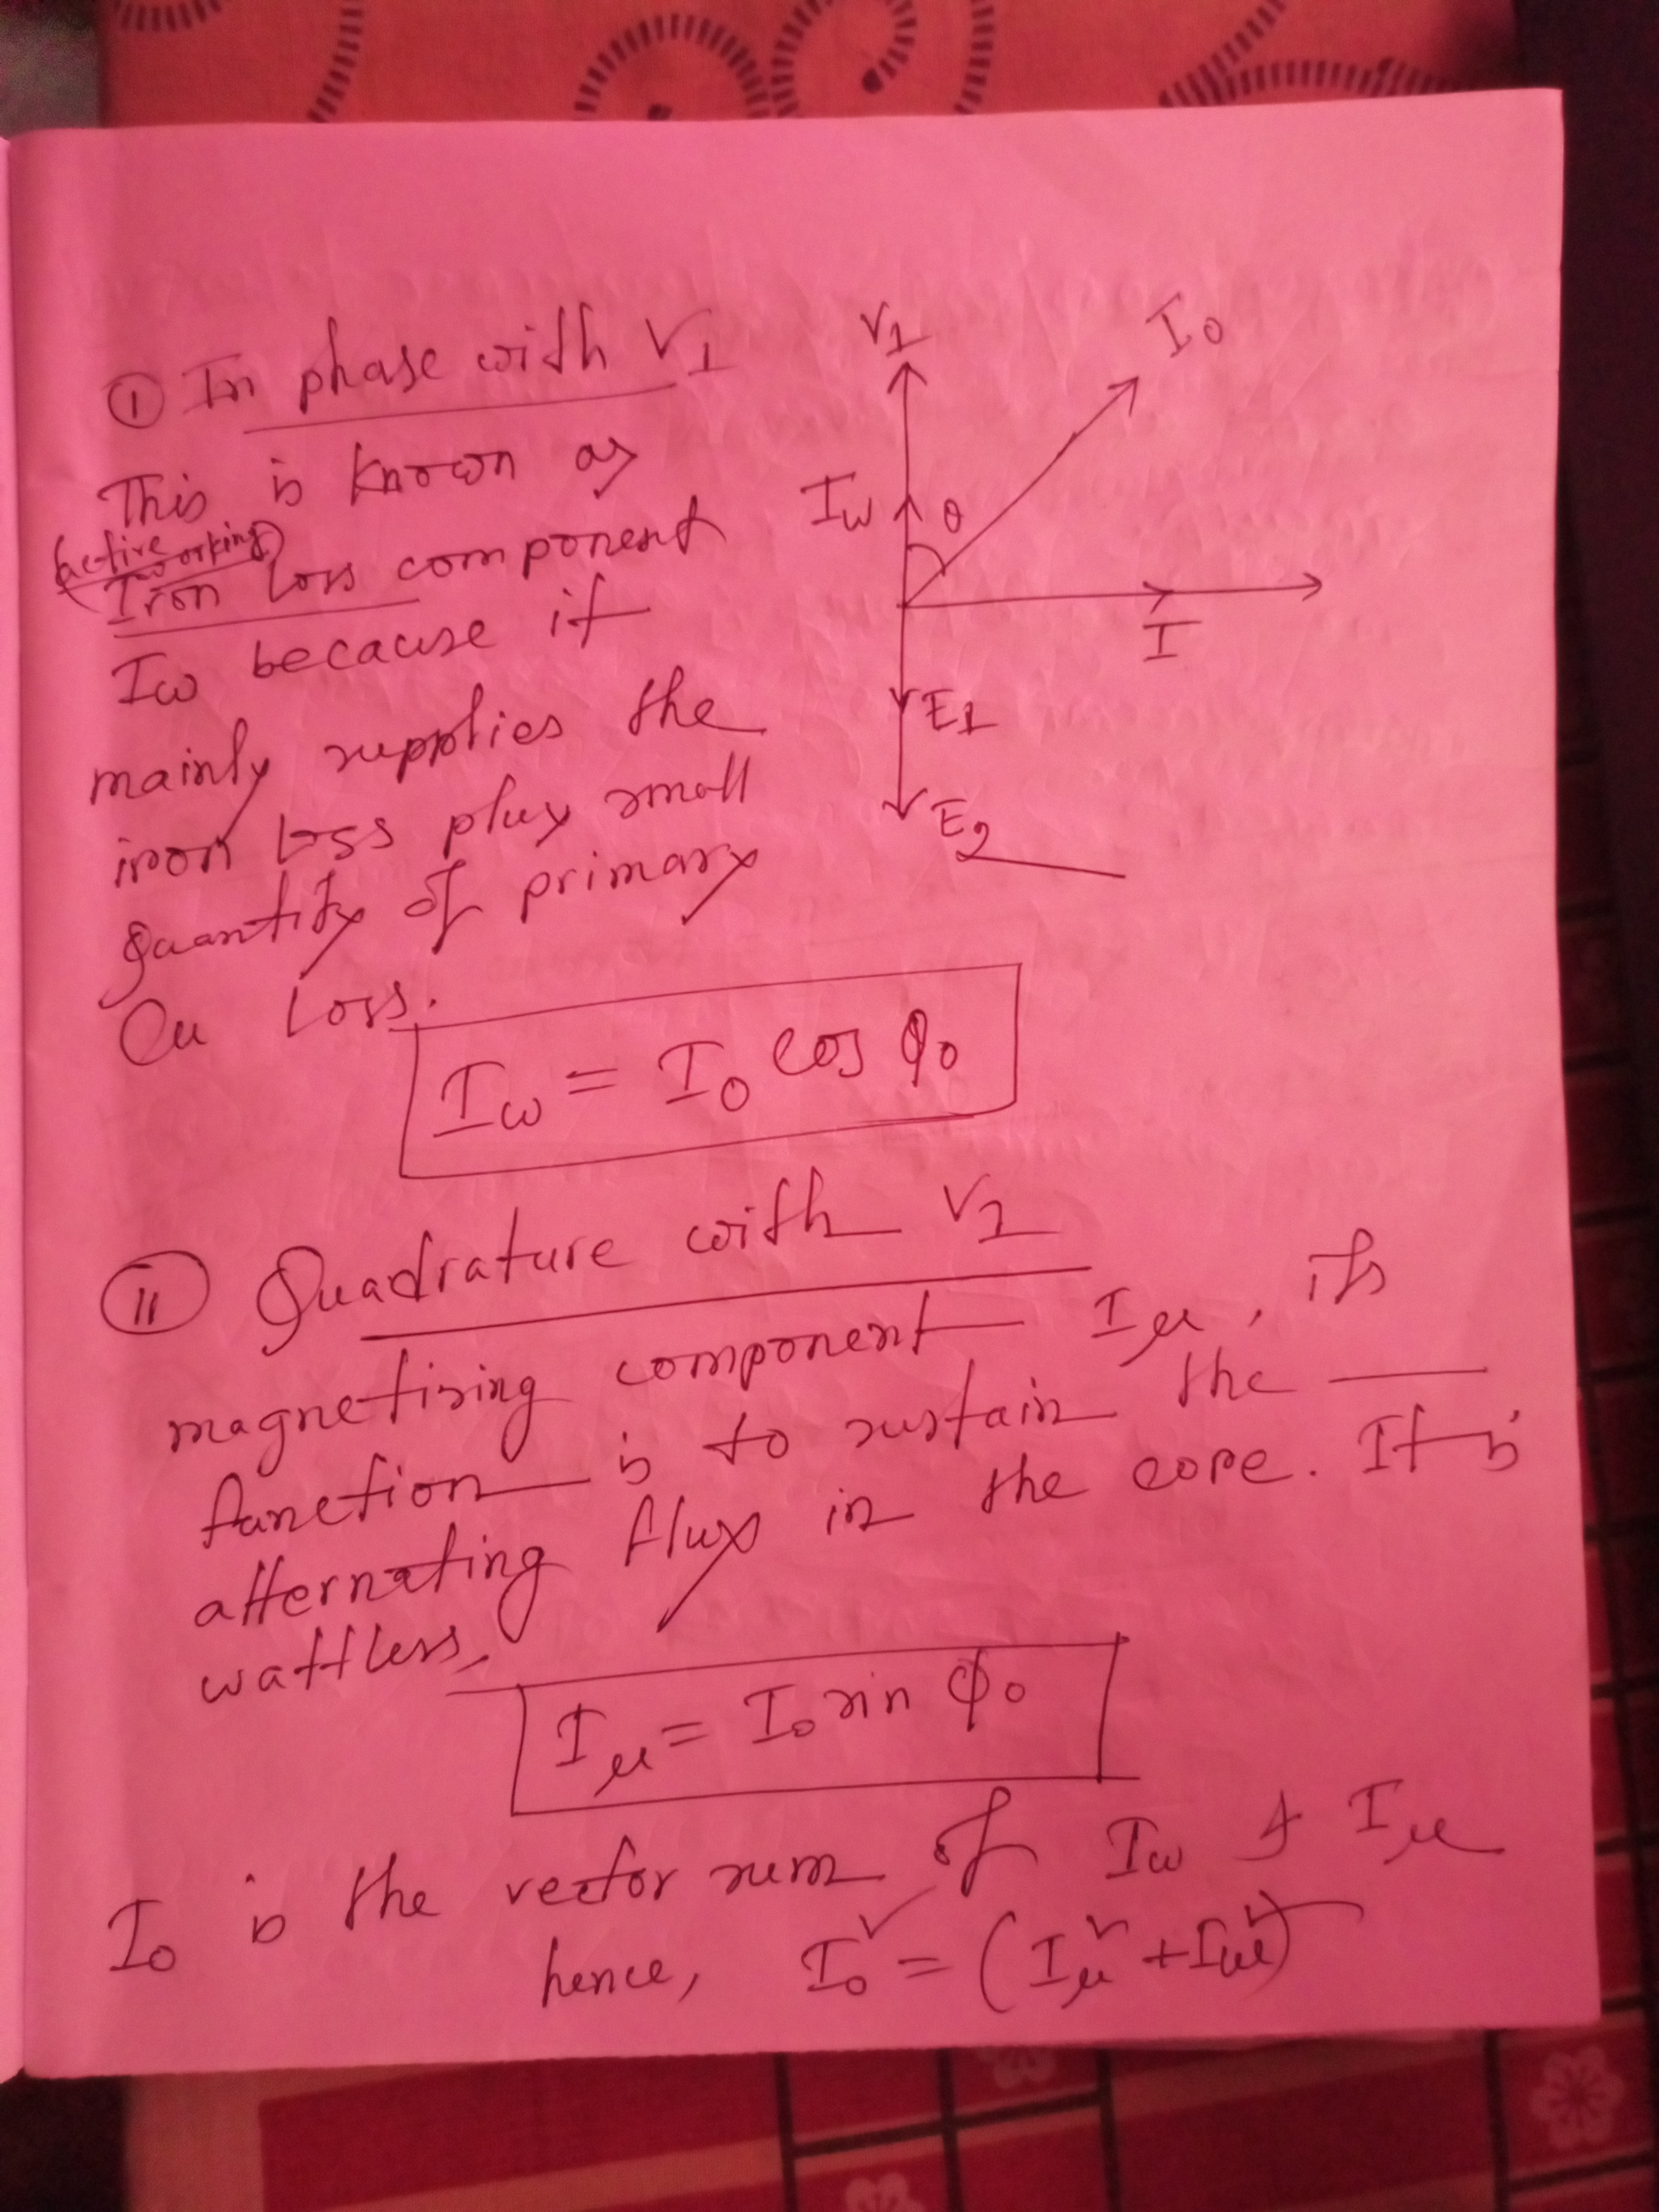 ① In phase with V1
This is known as
(active working)
Iron loss component
Iω because it
mainly supplies the
iron loss plus small
quantity of primary
Cu loss.
V1
I0
Iω
θ
I
E1
E2
Iω = I0 cos φ0
(ii) Quadrature with V1
magnetising component Iμ, its
function is to sustain the
alternating flux in the core. It is
wattless.
Iμ = I0 sin φ0
I0 is the vector sum of Iω & Iμ
hence, I0² = (Iμ² + Iω²)